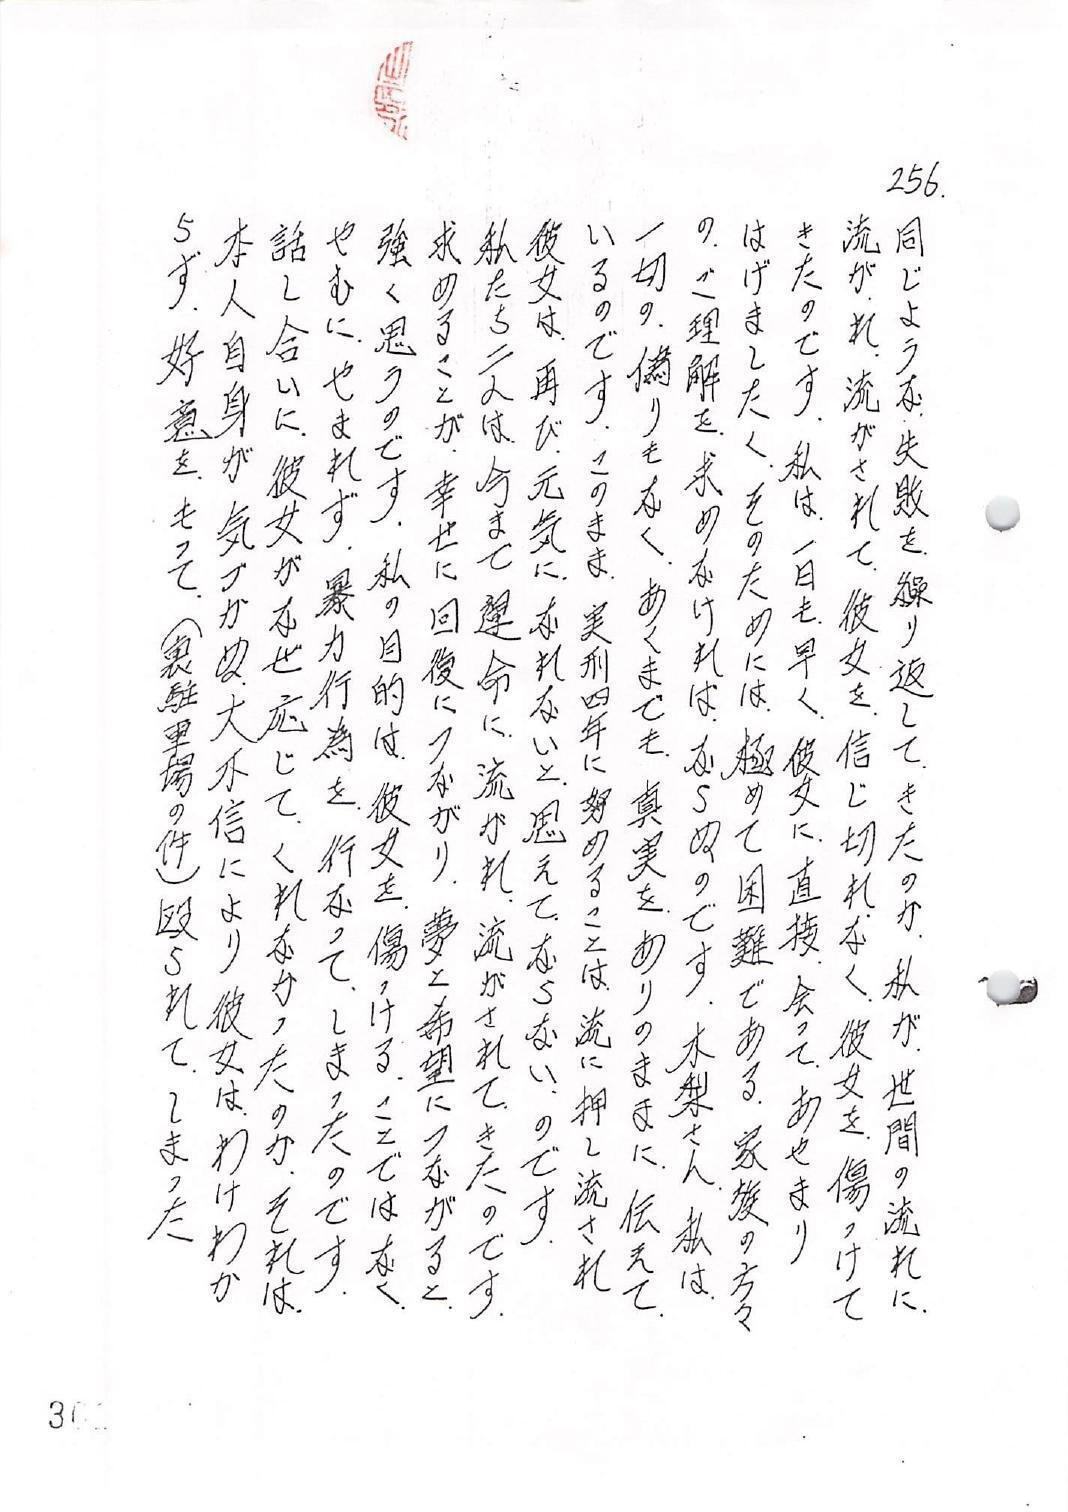 256.
同じような、失敗を、繰り返して、きたのか、私が、世間の流れに、
流がれ、流がされて、彼女を、信じ切れなく、彼女を、傷つけて
きたのです、私は、一日も、早く、彼女に、直接、会って、あやまり
はげましたく、そのためには、極めて困難である、家族の方々
の、ご理解を、求めなければ、ならぬのです、木梨さん、私は、
一切の、偽りもなく、あくまでも、真実を、ありのままに、伝えて、
いるのです、このまま、実刑四年に努めることは、流に押し流され
彼女は、再び、元気に、なれないと、思えて、ならない、のです、
私たち二人は、今まで運命に、流がれ、流がされて、きたのです、
求めることが、幸せに回復につながり、夢と希望につながると、
強く思うのです、私の目的は、彼女を、傷つける、ことではなく、
やむに、やまれず、暴力行為を、行なって、しまったのです、
話し合いに、彼女がなぜ応じて、くれなかったのか、それは、
本人自身が気づかぬ、大不信により彼女は、わけわか
らず、好意を、もって、（裏駐車場の件）殴られて、しまった
3